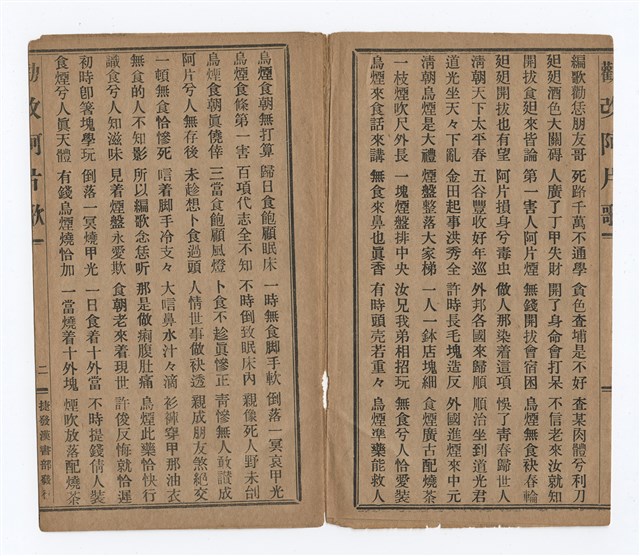 勸改阿片歌
編歌勸恁朋友哥 死路千萬不通學 貪色查埔是不好 查某肉體兮利刀
酒色大關碍 人廣了丁甲失財 開了身命會打呆 不信老來汝就知
開拔食 來皆論 第一害人阿片煙 無錢開拔會宿困 烏煙無食袂春輪
開拔也有望 阿片損身兮毒虫 做人那染着這項 悞了青春歸世人
清朝天下太平春 五谷豐收好年巡 外邦各國來歸順 順治坐到道光君
道光坐天々下亂 金田起事洪秀全 許時長毛塊造反 外國進煙來中元
清朝烏煙是大禮 煙盤整落大家梯 一人一鉢店塊細 食煙廣古配燒茶
一枝煙吹尺外長 一塊煙盤排中央 汝兄我弟相招玩 無食兮人恰愛裝
烏煙來食話來講 無食來鼻也眞香 有時頭壳若重々 烏煙準藥能救人
烏煙食朝無打算 歸日食飽顧眠床 一時無食脚手軟 倒落一冥哀甲光
烏煙食條第一害 百項代志全不知 不時倒致眠床內 親像死人野未刣
烏煙食朝眞僥倖 三當食飽顧風燈 卜食不趁眞慘正 靑慘無人敢讃成
阿片兮人無存後 未趁想卜食過頭 人情世事做袂透 親成朋友煞絕交
一頓無食恰慘死 唁着脚手冷支々 大唁鼻水汁々滴 衫褲穿甲那油衣
無食的人不知影 所以編歌念恁听 那是做痢腹肚痛 烏煙此藥恰快行
識食兮人知滋味 見着煙盤永愛欺 食朝老來着現世 許後反悔就恰遲
初時卽箸塊學玩 倒落一冥燒甲光 一日食着十外當 不時提錢倩人裝
食煙兮人眞天體 有錢烏煙燒恰加 一當燒着十外塊 煙吹放落配燒茶
勸改阿片歌 二 捷發漢書部發